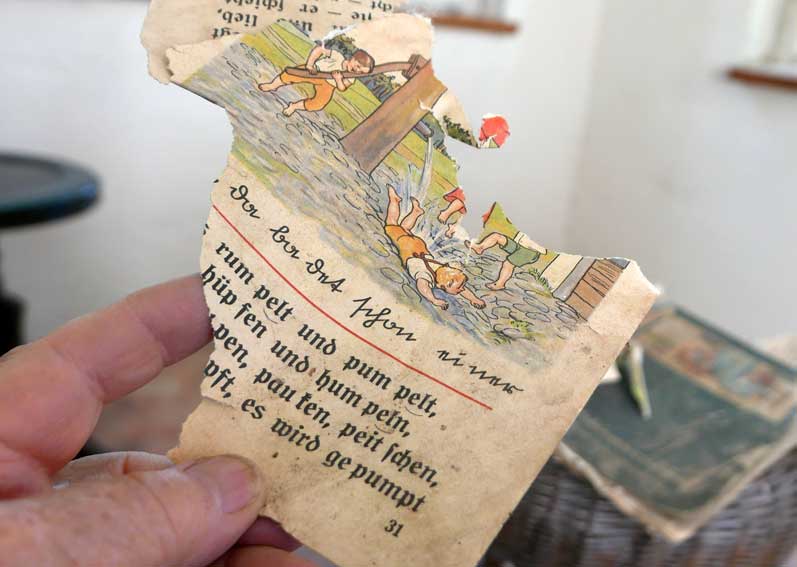 lieb,
da ba det ſchon ei ner
rum pelt und pum pelt,
hüp fen und hum peln,
pen, pau ken, peit ſchen,
pft, es wird ge pumpt
31